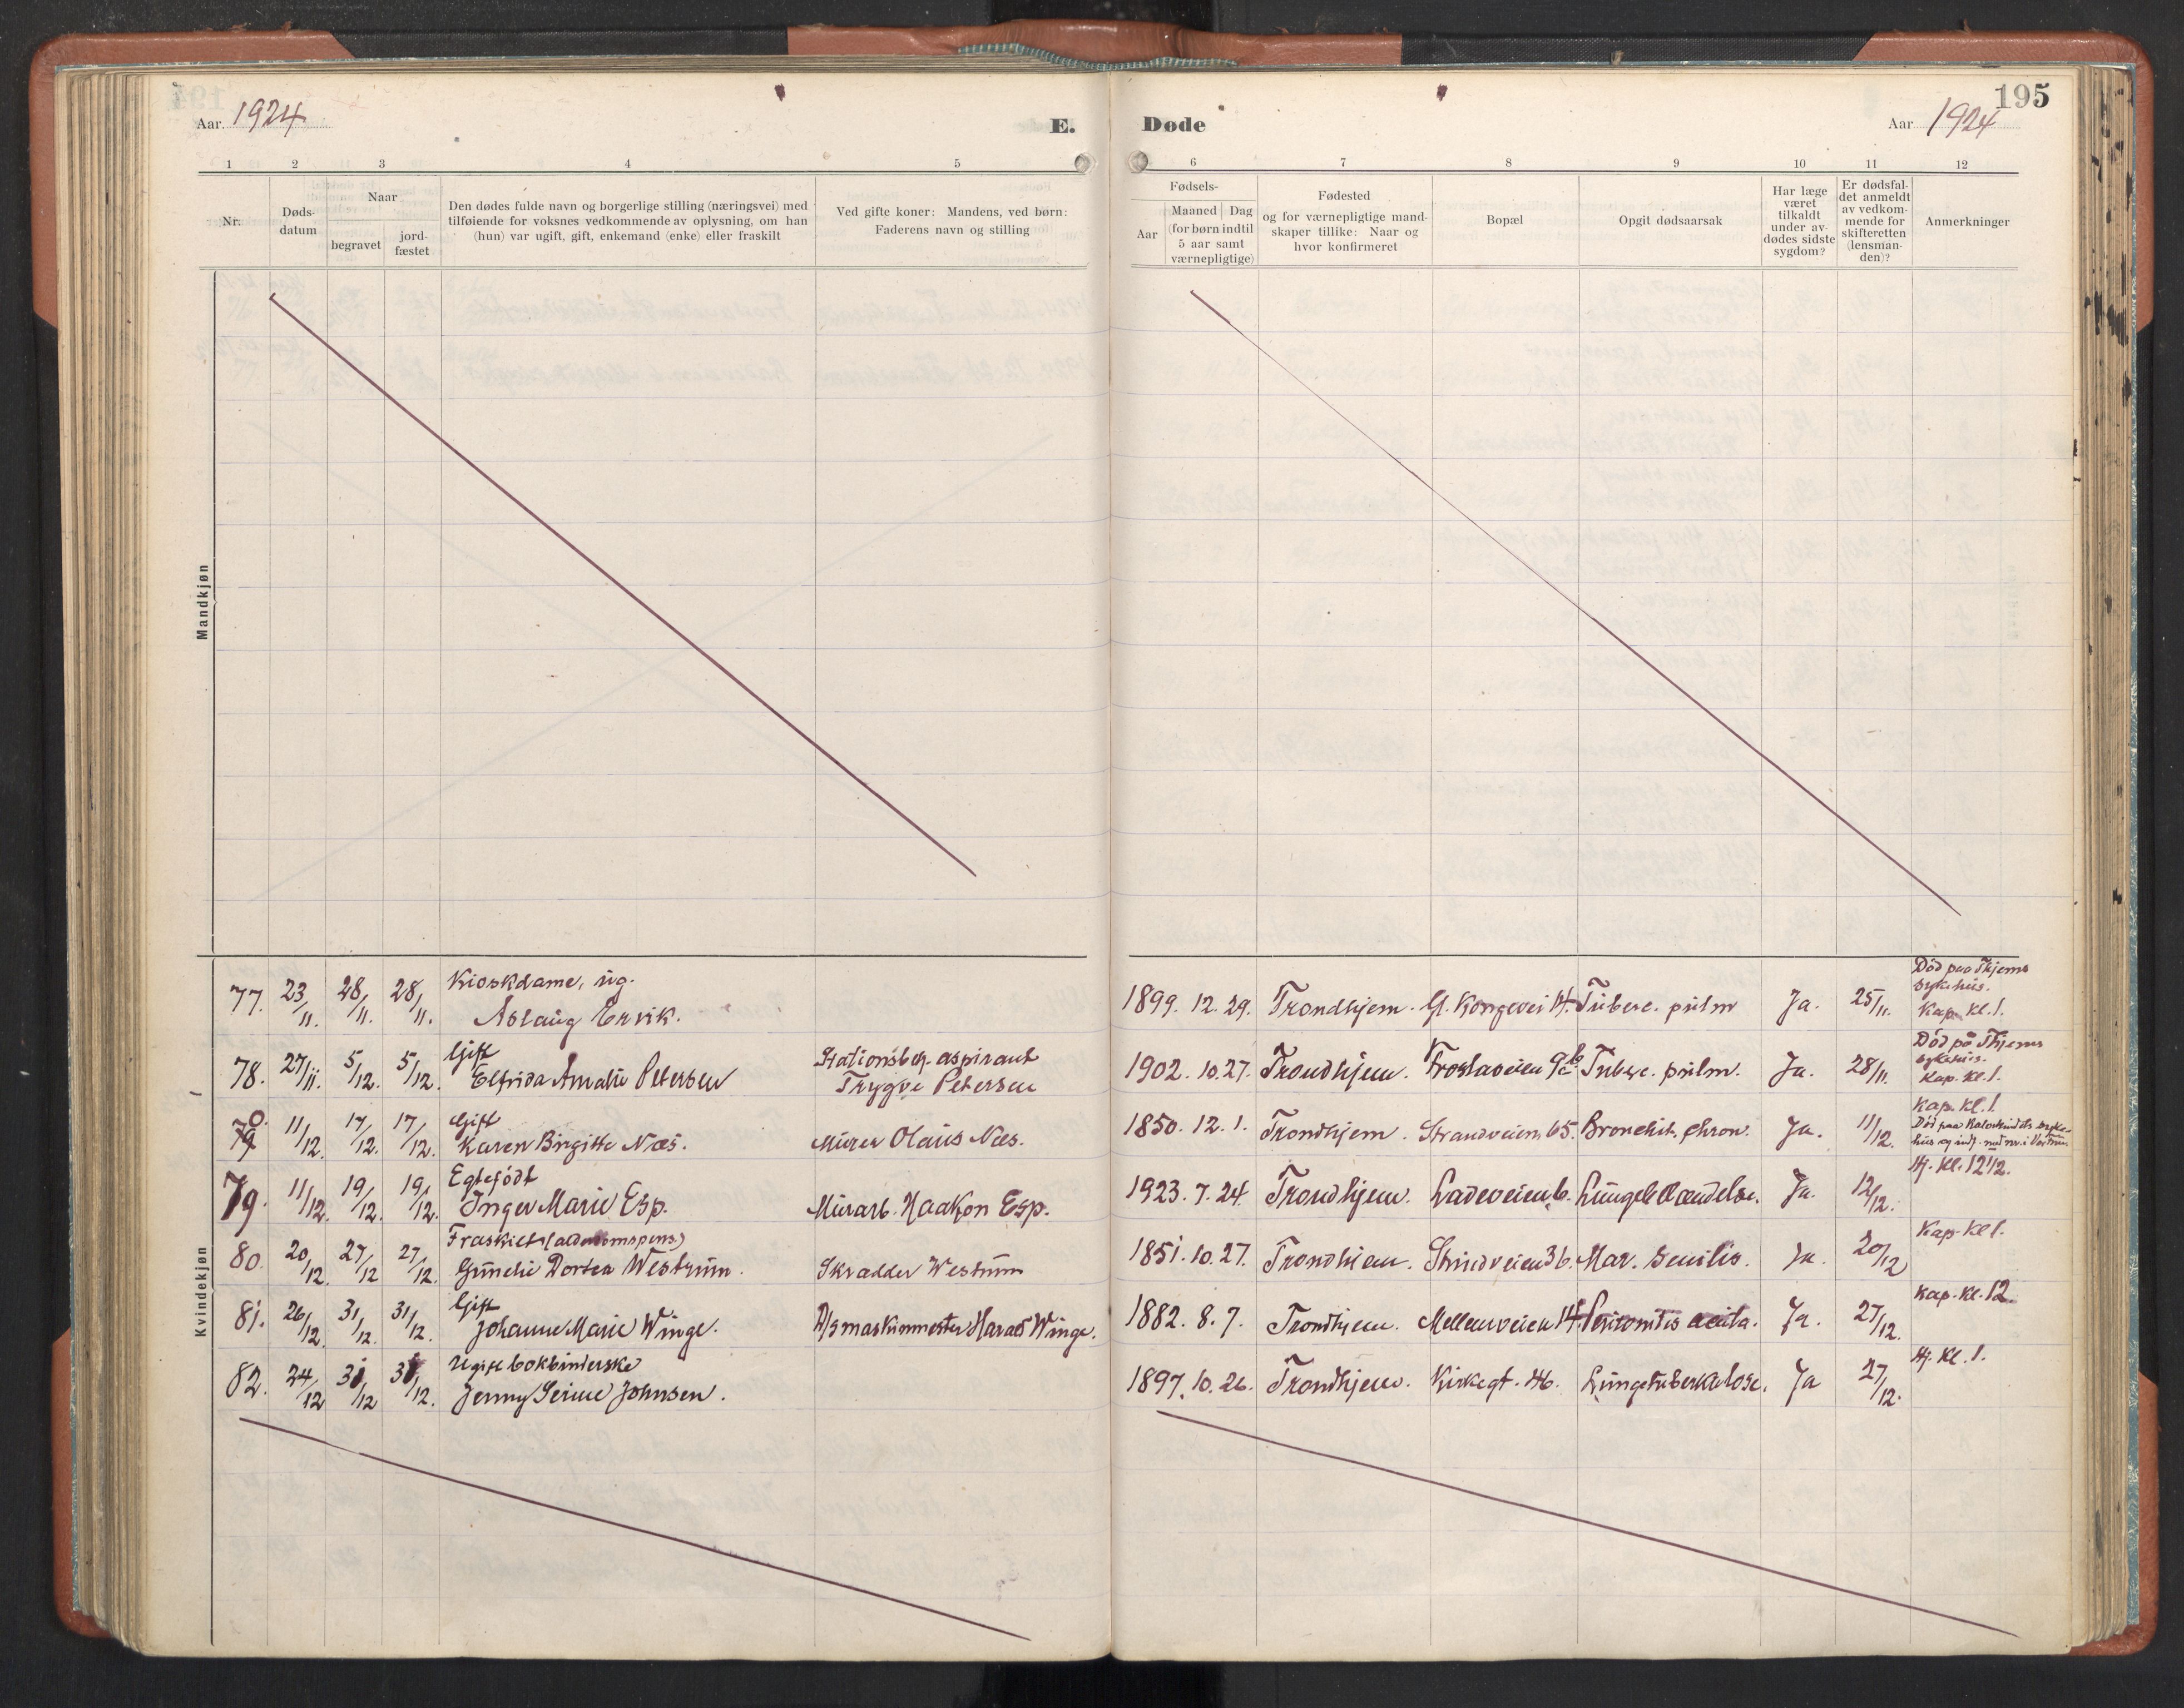 195
Aar 1924
E.
Døde
Aar 1924
1 2 3 4 5 6 7 8 9 10 11 12
Nr.
Døds-
datum
Naar
begravet
jord-
fæstet
Den dødes fulde navn og borgerlige stilling (næringsvei) med
tilføiende for voksnes vedkommende av oplysning, om han
(hun) var ugift, gift, enkemand (enke) eller fraskilt
Ved gifte koner: Mandens, ved børn:
Faderens navn og stilling
Fødsels-
Aar
Maaned Dag
(for børn indtil
5 aar samt
værnepligtige)
Fødested
og for værnepligtige mand-
skaper tillike: Naar og
hvor konfirmeret
Bopæl
Opgit dødsaarsak
Har læge
været
tilkaldt
under av-
dødes sidste
sygdom?
Er dødsfal-
det anmeldt
av vedkom-
mende for
skifteretten
(lensman-
den)?
Anmerkninger
Mandkjøn
Kvindekjøn
77. 23/11. 28/11. 28/11. Kioskdame, ug.
Aslaug Ervik.
1899. 12. 29. Trondhjem. Gl. Kongevei 14. Tuberc. pulm Ja. 25/11.
Död paa Thjems
sykehus.
Kap. kl. 1.
78. 27/11. 5/12. 5/12. Gift
Elfrida Amalie Petersen
Stationsbetj. aspirant
Trygve Petersen
1902. 10. 27. Trondhjem. Frostaveien 9 Tuberc. pulm. Ja. 28/11.
Död på Thjems
sykehus.
Kap. kl. 1.
70. 11/12. 17/12. 17/12. Gift
Karen Birgitte Næs.
Murer Olaus Næs.
1850. 12. 1. Trondhjem. Strandveien 65. Bronchit. chron. Ja. 11/12.
Kap. kl. 1.
Död paa
hus og indf.
79. 11/12. 19/12. 19/12. Egtefödt
Inger Marie Esp.
Murarb. Haakon Esp.
1923. 7. 24. Trondhjem. Ladeveien 6. Lungebetændelse. Ja. 12/12.
Hj. kl. 12 1/2.
80. 20/12. 27/12 27/12. Fraskilt (alderdomspens.)
Gunelie Dortea Westrum.
Skrædder Westrum
1851. 10. 27. Trondhjem. Strindveien 36. Mar. senilis. Ja. 20/12
Kap. kl 1.
81. 26/12. 31/12. 31/12. Gift
Johanne Marie Winge.
D/S maskinmester Harald Winge.
1882. 8. 7. Trondhjem. Mellemveien 14. Peritonitis acuta. Ja. 27/12.
Kap. kl. 12.
82. 24/12 31/12 31/12. Ugift bokbinderske
Jenny Serine Johnsen.
1897. 10. 26. Trondhjem. Kirkegt. 46. Lungetuberkulose. Ja 27/12.
Hj. kl. 1.